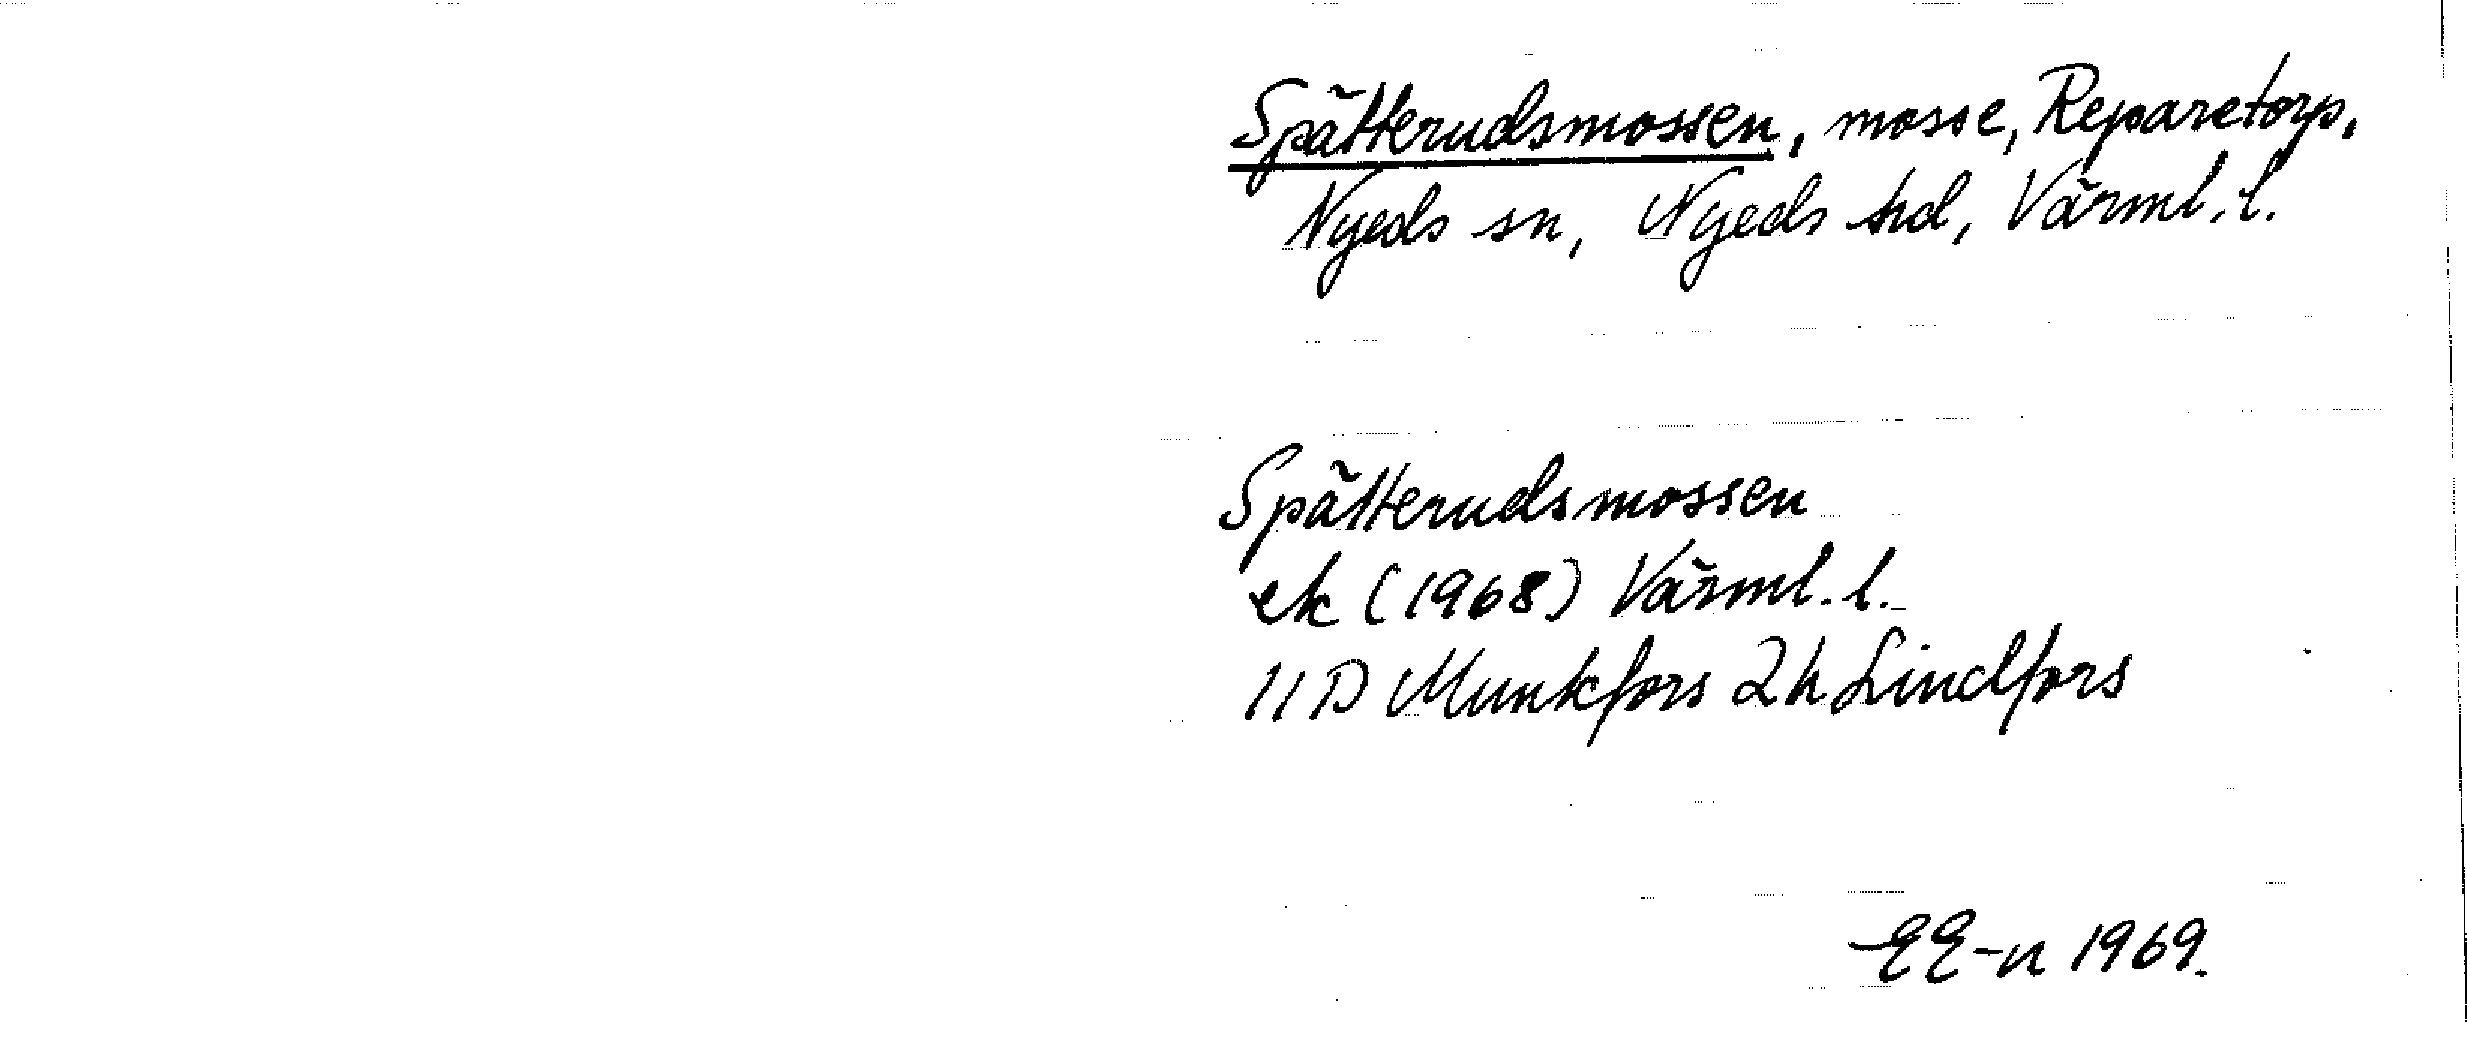 Spätterudsmossen, mosse, Reparetorp,
Nyeds sn, Nyeds hd, Värml. l.
Spätterudsmossen
ek (1968) Värml. l.
11D Munkfors 2h Lindfors
EE-n 1969.